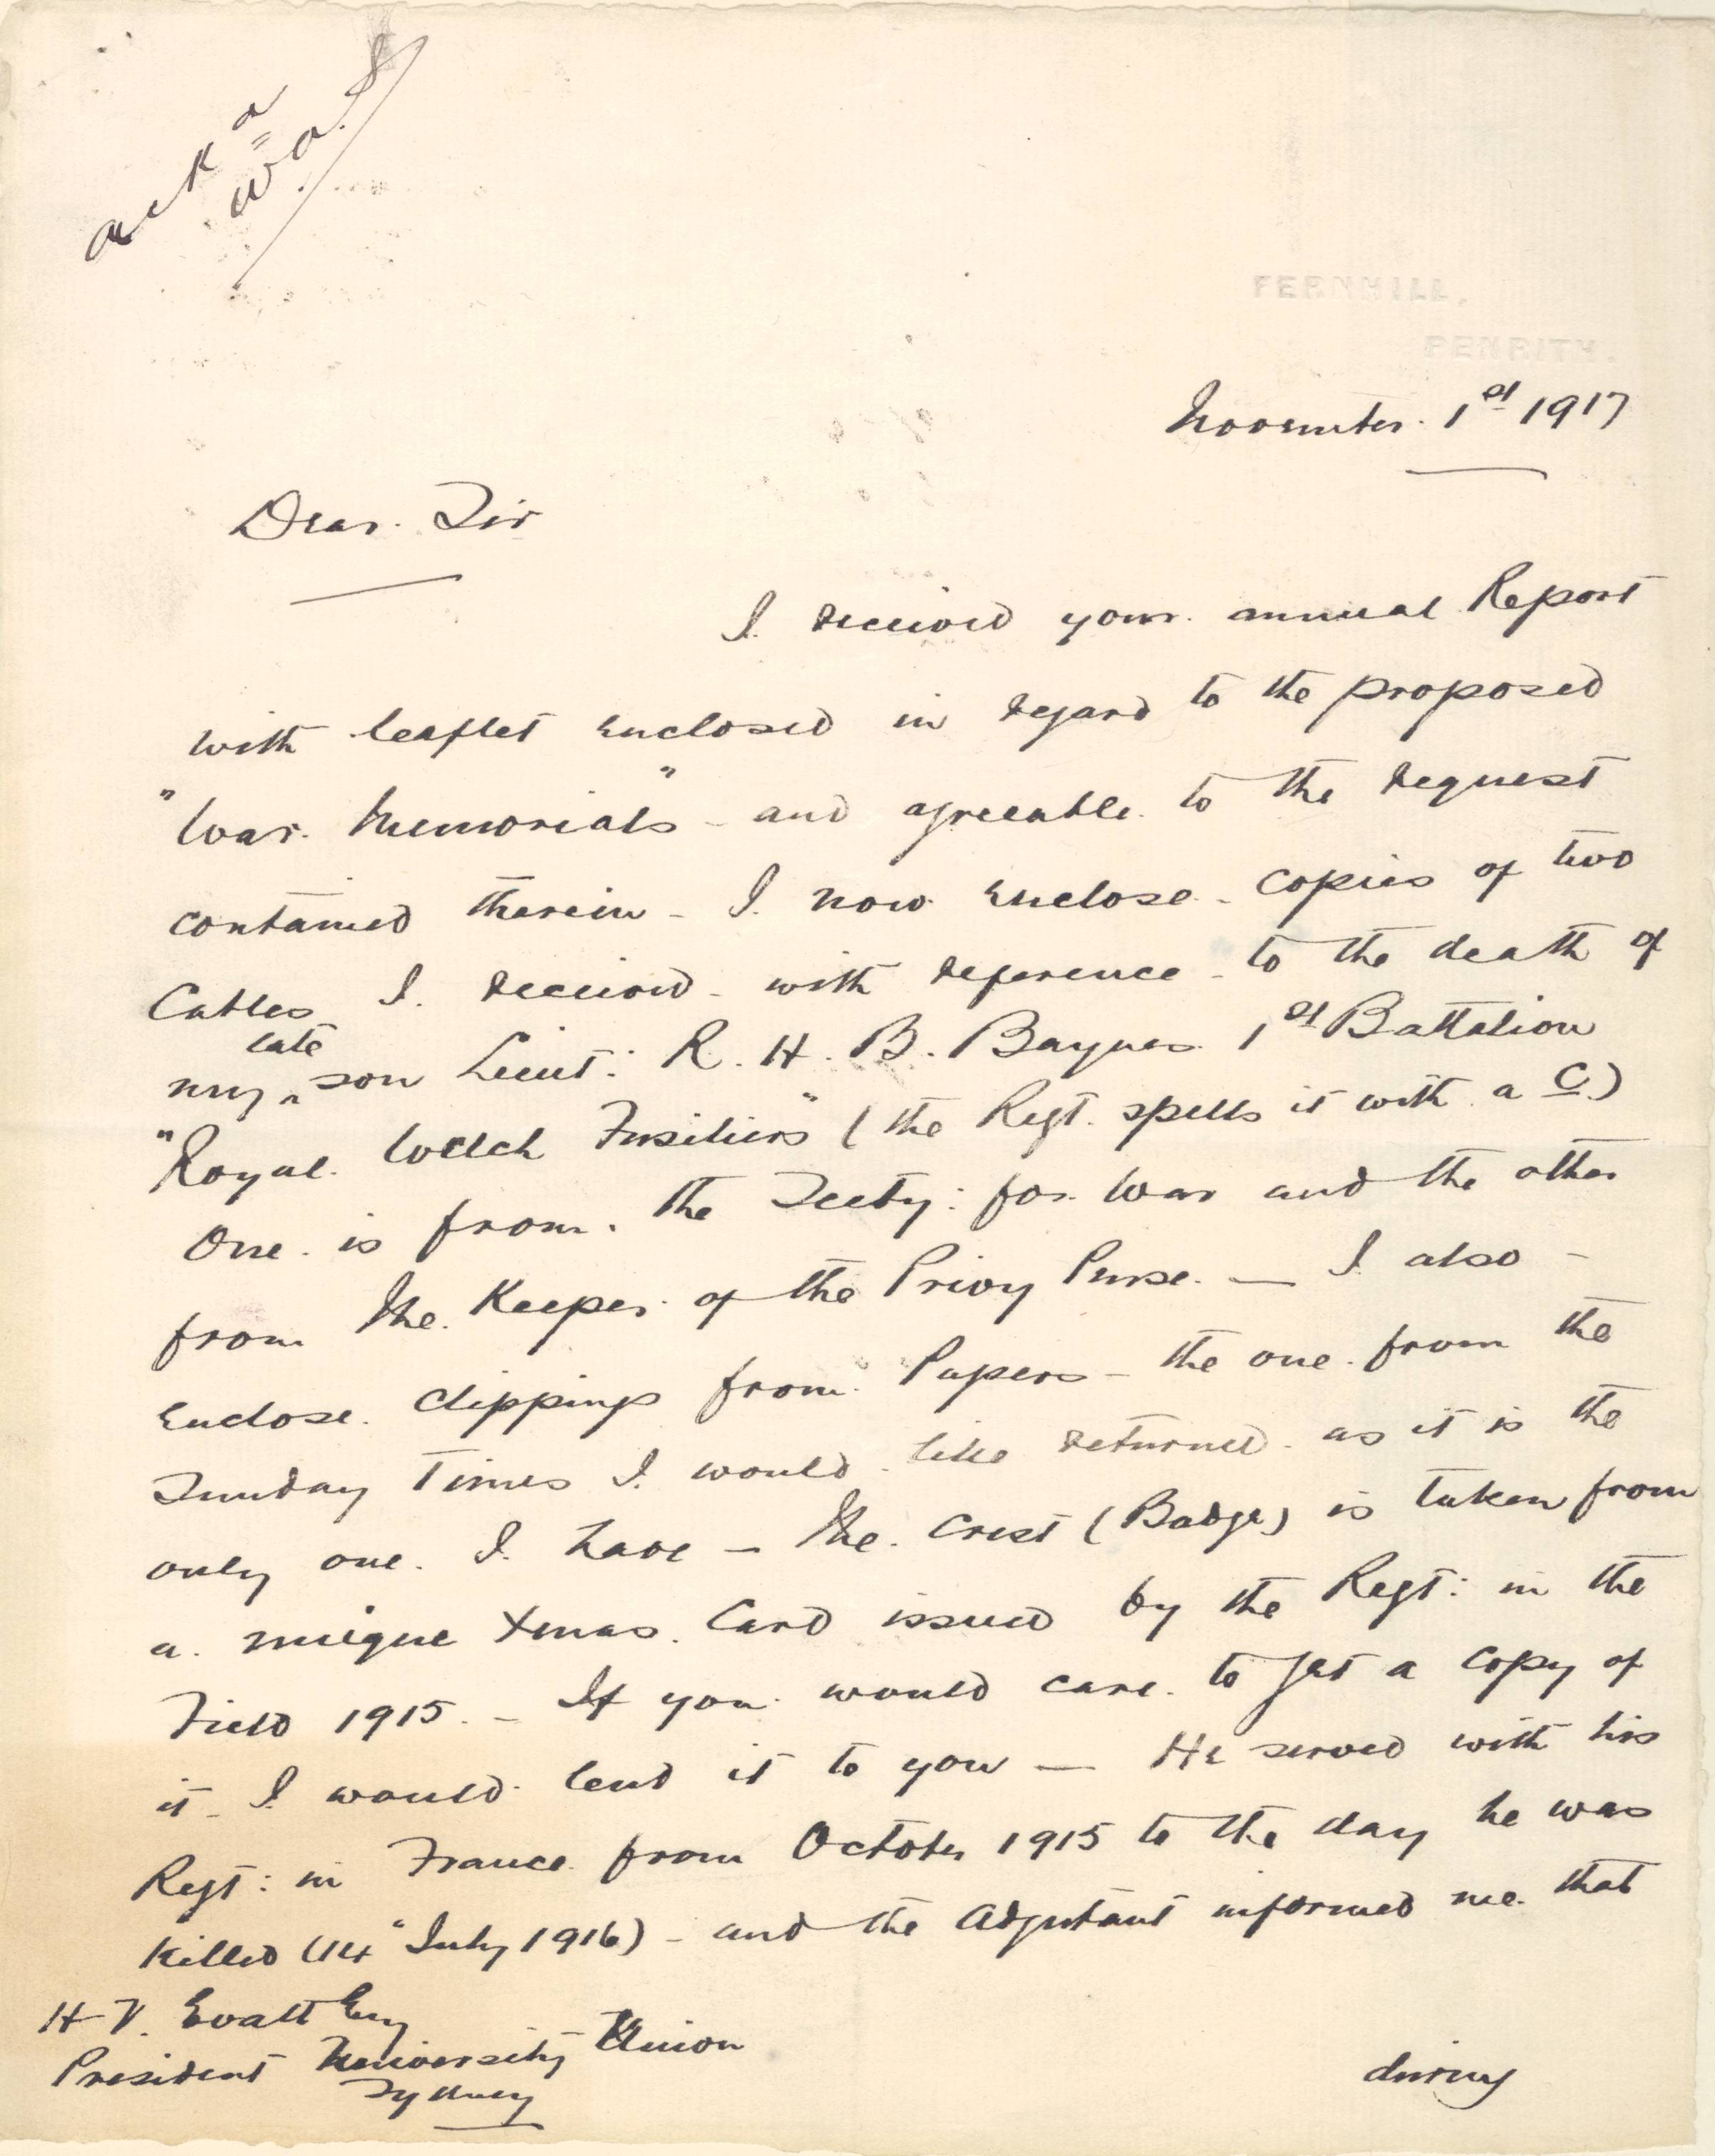 ack d
w a. f
FERNHILL,
PENRITH.
November. 1st 1917
Dear. Sir
I. received your. annual Report
with leaflet enclosed in regard to the proposed
"War. Memorials" - and agreeable. to the request
contained therein - I. now enclose - copies of two
Cables I. received - with reference - to the death of
late
my ^ son Lieut: R. H. B. Baynes. 1st Battalion
"Royal. Welch Fusiliers" (the Regt. spells it with a C)
One. is from. the Secty: for. War and the other
from The. Keeper. of the Privy Purse. — I also -
enclose. clippings from. Papers - the one. from the
Sunday Times I. would. like returned. as it is the
only one. I. have — The. Crest (Badge) is taken from
a. unique Xmas. Card issued by the Regt: in the
Field 1915. - If you. would care. to get a copy of
it - I would. lend it to you — He served with his
Regt: in France. from October 1915 to the day he was
killed (14" July 1916) - and the Adjutant informed me. that
H V. Evatt Esq
President University Union
Sydney
during